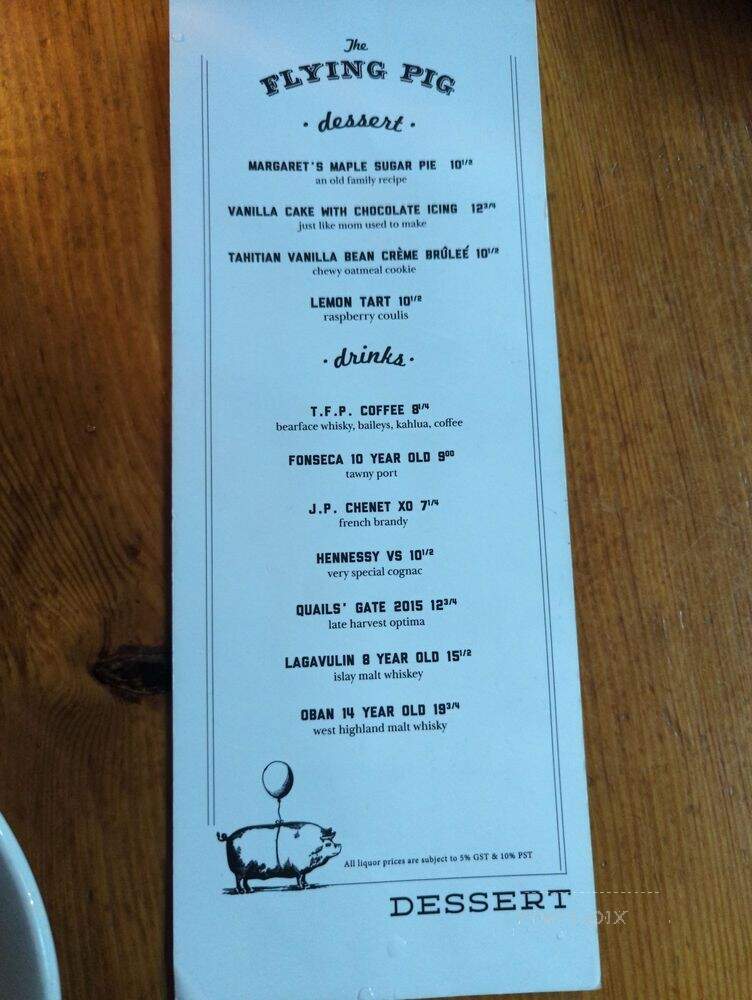 The
FLYING PIG
· dessert ·
MARGARET'S MAPLE SUGAR PIE 10 1/2
an old family recipe
VANILLA CAKE WITH CHOCOLATE ICING 12 3/4
just like mom used to make
TAHITIAN VANILLA BEAN CRÈME BRÛLEÉ 10 1/2
chewy oatmeal cookie
LEMON TART 10 1/2
raspberry coulis
· drinks ·
T.F.P. COFFEE 8 1/4
bearface whisky, baileys, kahlua, coffee
FONSECA 10 YEAR OLD 9 00
tawny port
J.P. CHENET XO 7 1/4
french brandy
HENNESSY VS 10 1/2
very special cognac
QUAILS' GATE 2015 12 3/4
late harvest optima
LAGAVULIN 8 YEAR OLD 15 1/2
islay malt whiskey
OBAN 14 YEAR OLD 19 3/4
west highland malt whisky
All liquor prices are subject to 5% GST & 10% PST
DESSERT